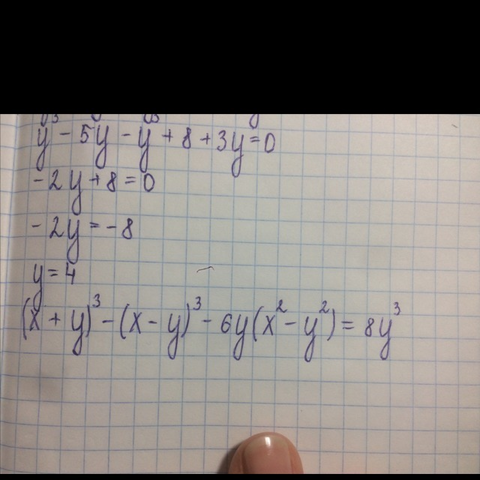 y³ - 5y - y³ + 8 + 3y = 0
-2y + 8 = 0
-2y = -8
y = 4
(x + y)³ - (x - y)³ - 6y(x² - y²) = 8y³